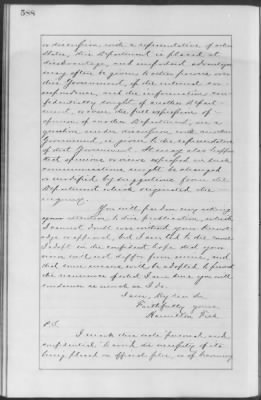 588
or discussion, with a representative of other
States, the Department is placed at
disadvantage, and important advantages
may often be given to other powers over
this Government, if the internal
confidence, and the information con-
fidentially sought of another Depart-
ment, or even the full expression of
opinion of another Department, on a
question under discussion with another
Government, is given to the representative
of that Government. It may also happen
that opinions or views expressed in such
communications might be changed
or modified by suggestions from the
Department which originated the
inquiry.
You will pardon my asking
your attention to this publication, which
I cannot doubt was without your knowl-
edge or approval, but I am led to the more
I adopt in the confident hope that your
views will not differ from mine, and
that some means will be adopted to prevent
the recurrence of what I am sure you will
condemn as much as I do.
I am, My dear Sir
Faithfully yours
Hamilton Fish
P.S.
I mark this note "personal and
confidential" to avoid the necessity of its
being placed on official files, or of becoming